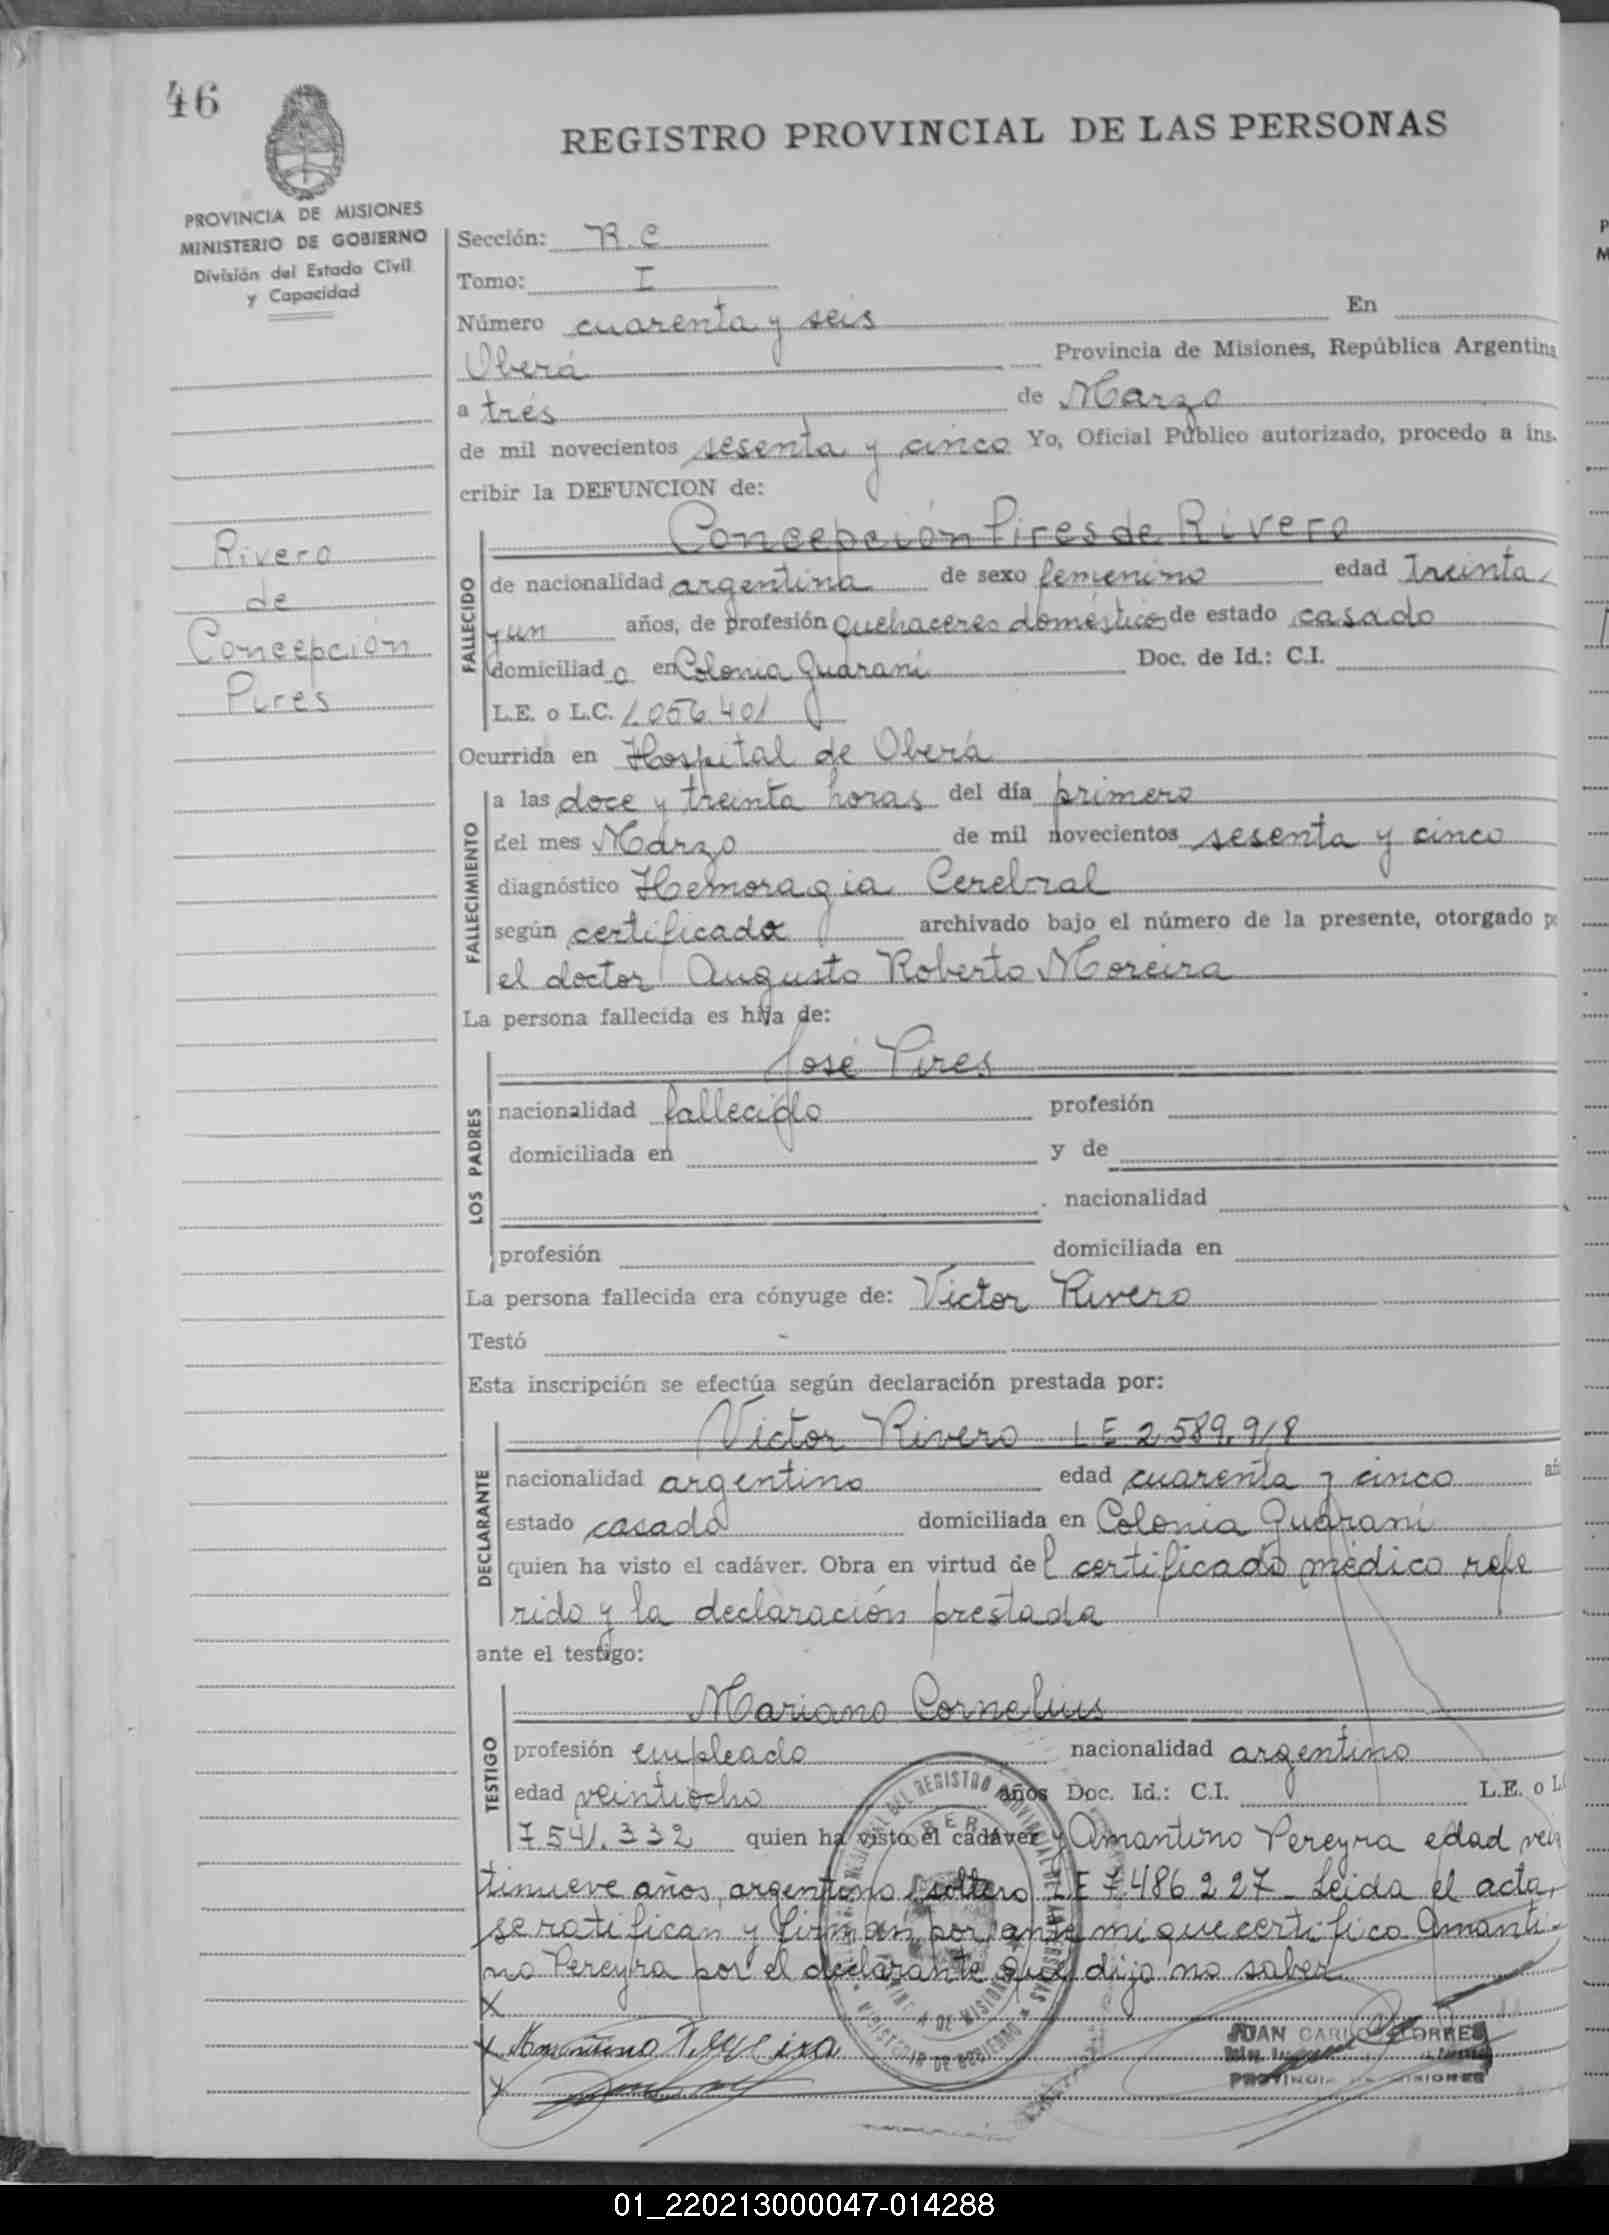 46
REGISTRO PROVINCIAL DE LAS PERSONAS
PROVINCIA DE MISIONES
MINISTERIO DE GOBIERNO
División del Estado Civil
y Capacidad
Sección: R.C
Tomo: I
Número cuarenta y seis En
Oberá Provincia de Misiones, República Argentina
a trés de Marzo
de mil novecientos sesenta y cinco Yo, Oficial Público autorizado, procedo a ins-
cribir la DEFUNCION de:
Rivero
de
Concepción
Pires
FALLECIDO
Concepción Pires de Rivero
de nacionalidad argentina de sexo femenino edad treinta
y un años, de profesión quehaceres domésticos de estado casado
domiciliad o en Colonia Guaraní Doc. de Id.: C.I.
L.E. o L.C. 1.056.401
Ocurrida en Hospital de Oberá
FALLECIMIENTO
a las doce y treinta horas del día primero
del mes Marzo de mil novecientos sesenta y cinco
diagnóstico Hemoragia Cerebral
según certificado archivado bajo el número de la presente, otorgado p
el doctor Augusto Roberto Moreira
La persona fallecida es hija de:
LOS PADRES
José Pires
nacionalidad fallecido profesión
domiciliada en y de
nacionalidad
profesión domiciliada en
La persona fallecida era cónyuge de: Victor Rivero
Testó -
Esta inscripción se efectúa según declaración prestada por:
DECLARANTE
Victor Rivero LE 2.589.918
nacionalidad argentino edad cuarenta y cinco añ
estado casado domiciliada en Colonia Guaraní
quien ha visto el cadáver. Obra en virtud de l certificado médico refe
rido y la declaración prestada
ante el testigo:
TESTIGO
Mariano Cornelius
profesión empleado nacionalidad argentino
edad veintiocho años Doc. Id.: C.I. L.E. o L.
7.541.332 quien ha visto el cadáver y Amantino Pereyra edad vein
tinueve años, argentino soltero LE 7.486 227- Leida el acta,
se ratifican y firman por ante mi que certifico Amanti-
no Pereyra por el declarante que dijo no saber
X
X Amantino Pereyra
X
JUAN CARLOS TORRES
PROVINCIA DE MISIONES
01_220213000047-014288